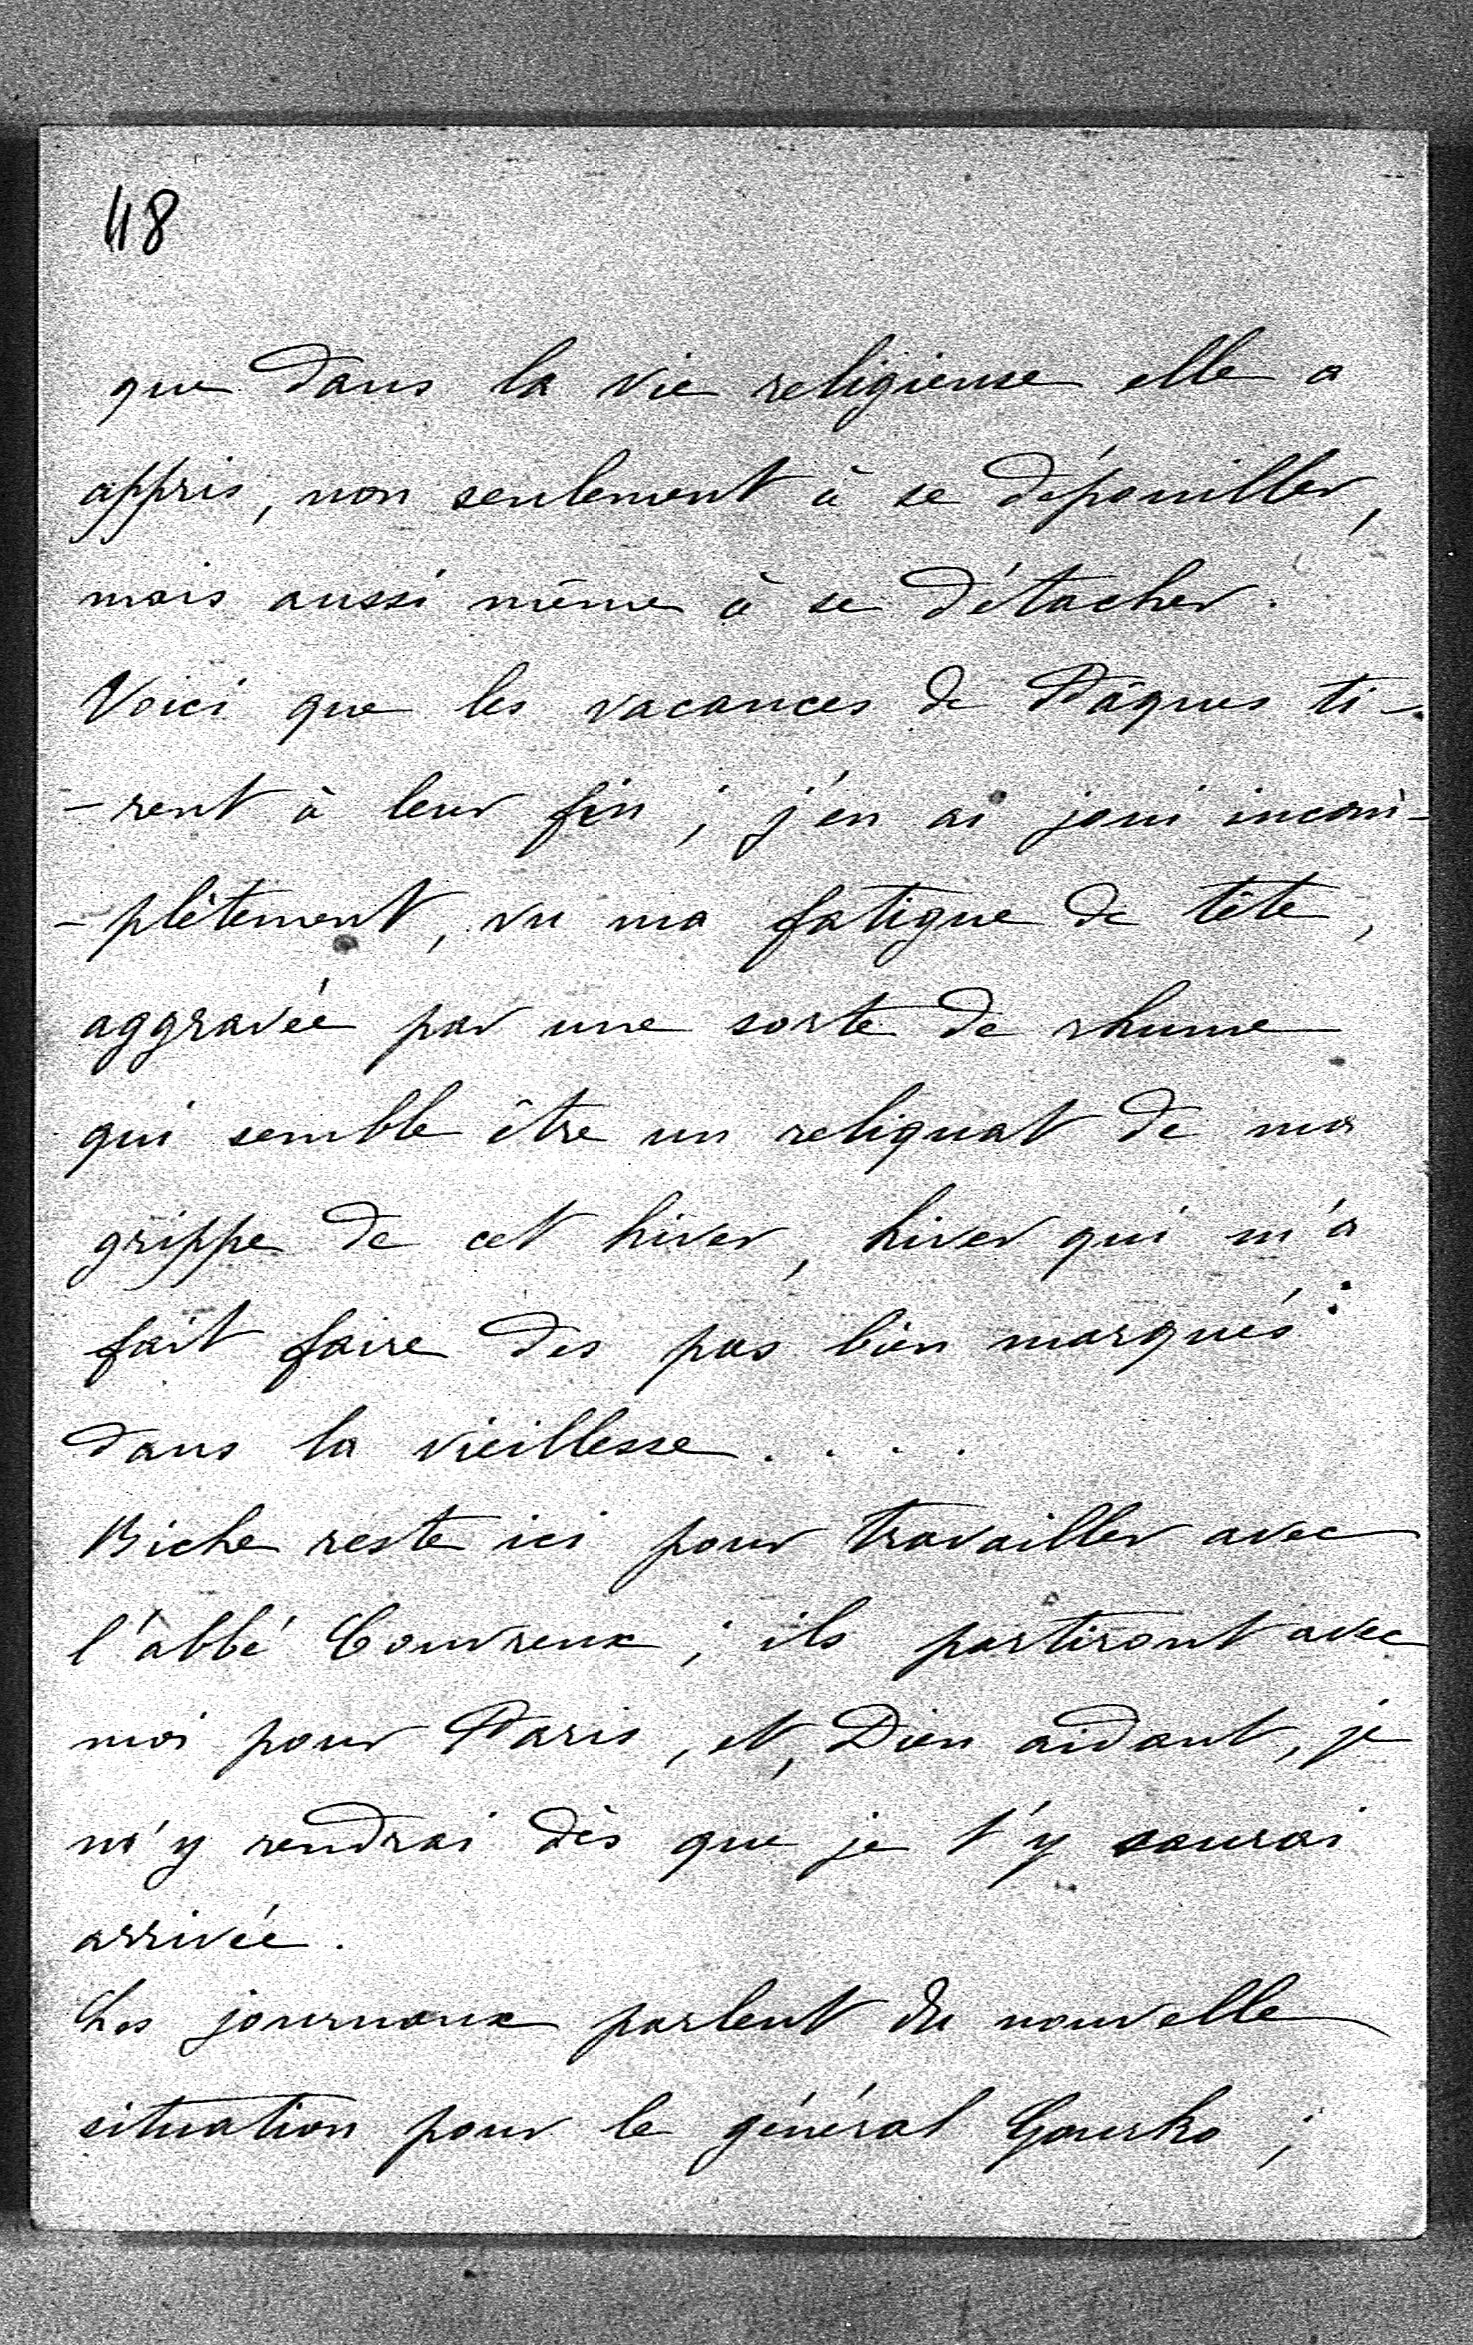 48
que dans la vie religieuse elle a
appris, non seulement à se dépouiller,
mais aussi même à se détacher.
Voici que les vacances de Pâques ti-
-rent à leur fin ; j'en ai joui incom-
-plètement, vu ma fatigue de tête,
aggravée par une sorte de rhume
qui semble être un reliquat de ma
grippe de cet hiver, hiver qui m'a
fait faire des pas bien marqués
dans la vieillesse . . . .
Biche reste ici pour travailler avec
l'abbé Couvreux ; ils partiront avec
moi pour Paris, et, Dieu aidant, je
m'y rendrai dès que je t'y saurai
arrivée.
Les journaux parlent de nouvelle
situation pour le général Gourko ;